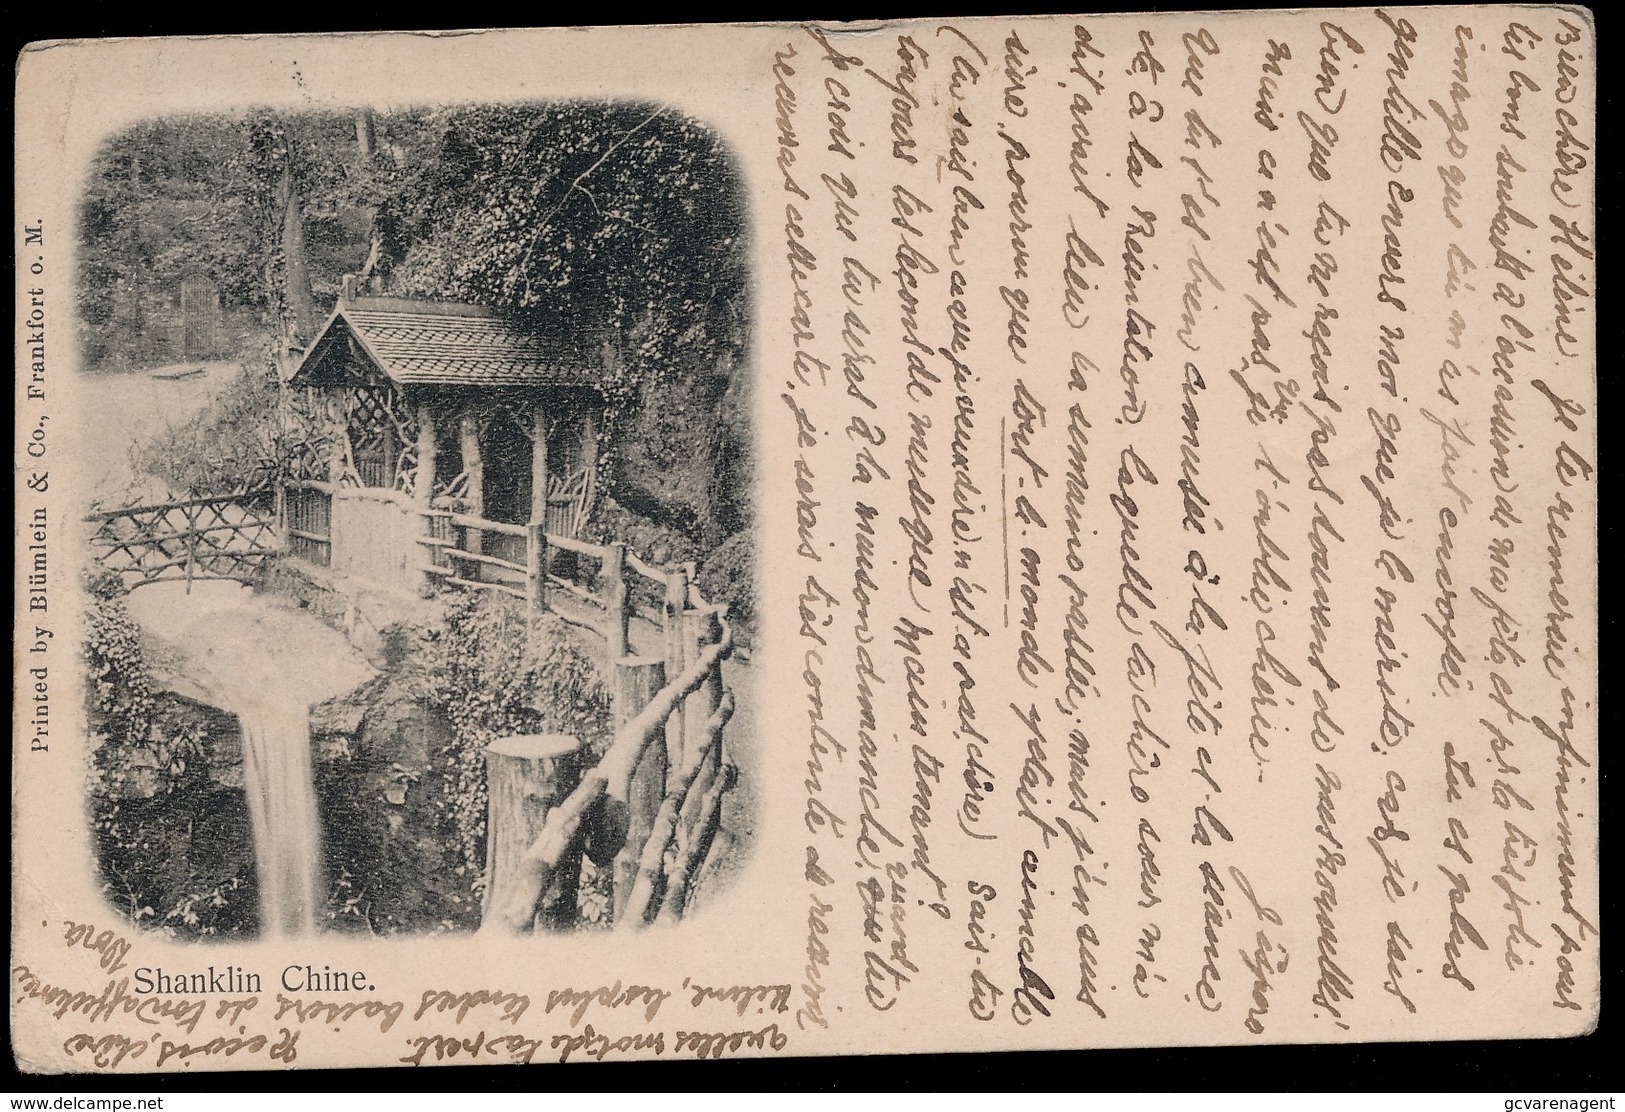 Bien chère Hélène. Je te remercie infiniment pour
tes bons souhaits à l'occasion de ma fête et p. la très jolie
image que tu m'as fait envoyée. Tu es plus
gentille envers moi que je le mérite, car je sais
bien que tu ne reçois pas souvent de mes nouvelles!
mais ce n'est pas que je t'oublie chérie.- J'espère
que tu t'es bien amusée à la fête et la séance
et à la Réunitation, laquelle ta chère sœur m'a
dit avait lieu la semaine passée; mais j'en suis
sûre, pourvu que tout-le-monde était aimable
(tu sais bien ce que je veux dire n'est-ce pas, chère) Sais-tu
toujours les leçons de musique maintenant?
Je crois que tu seras à la maison dimanche, ou tu
recevras cette carte, je serais très contente de recevoir
quelques mots de ta part. Reçois, chère
Hélène, les plus tendres baisers de ton affectionnée
Dora.
Shanklin Chine.
Printed by Blümlein & Co., Frankfort o. M.
www.delcampe.net
gcvarenagent